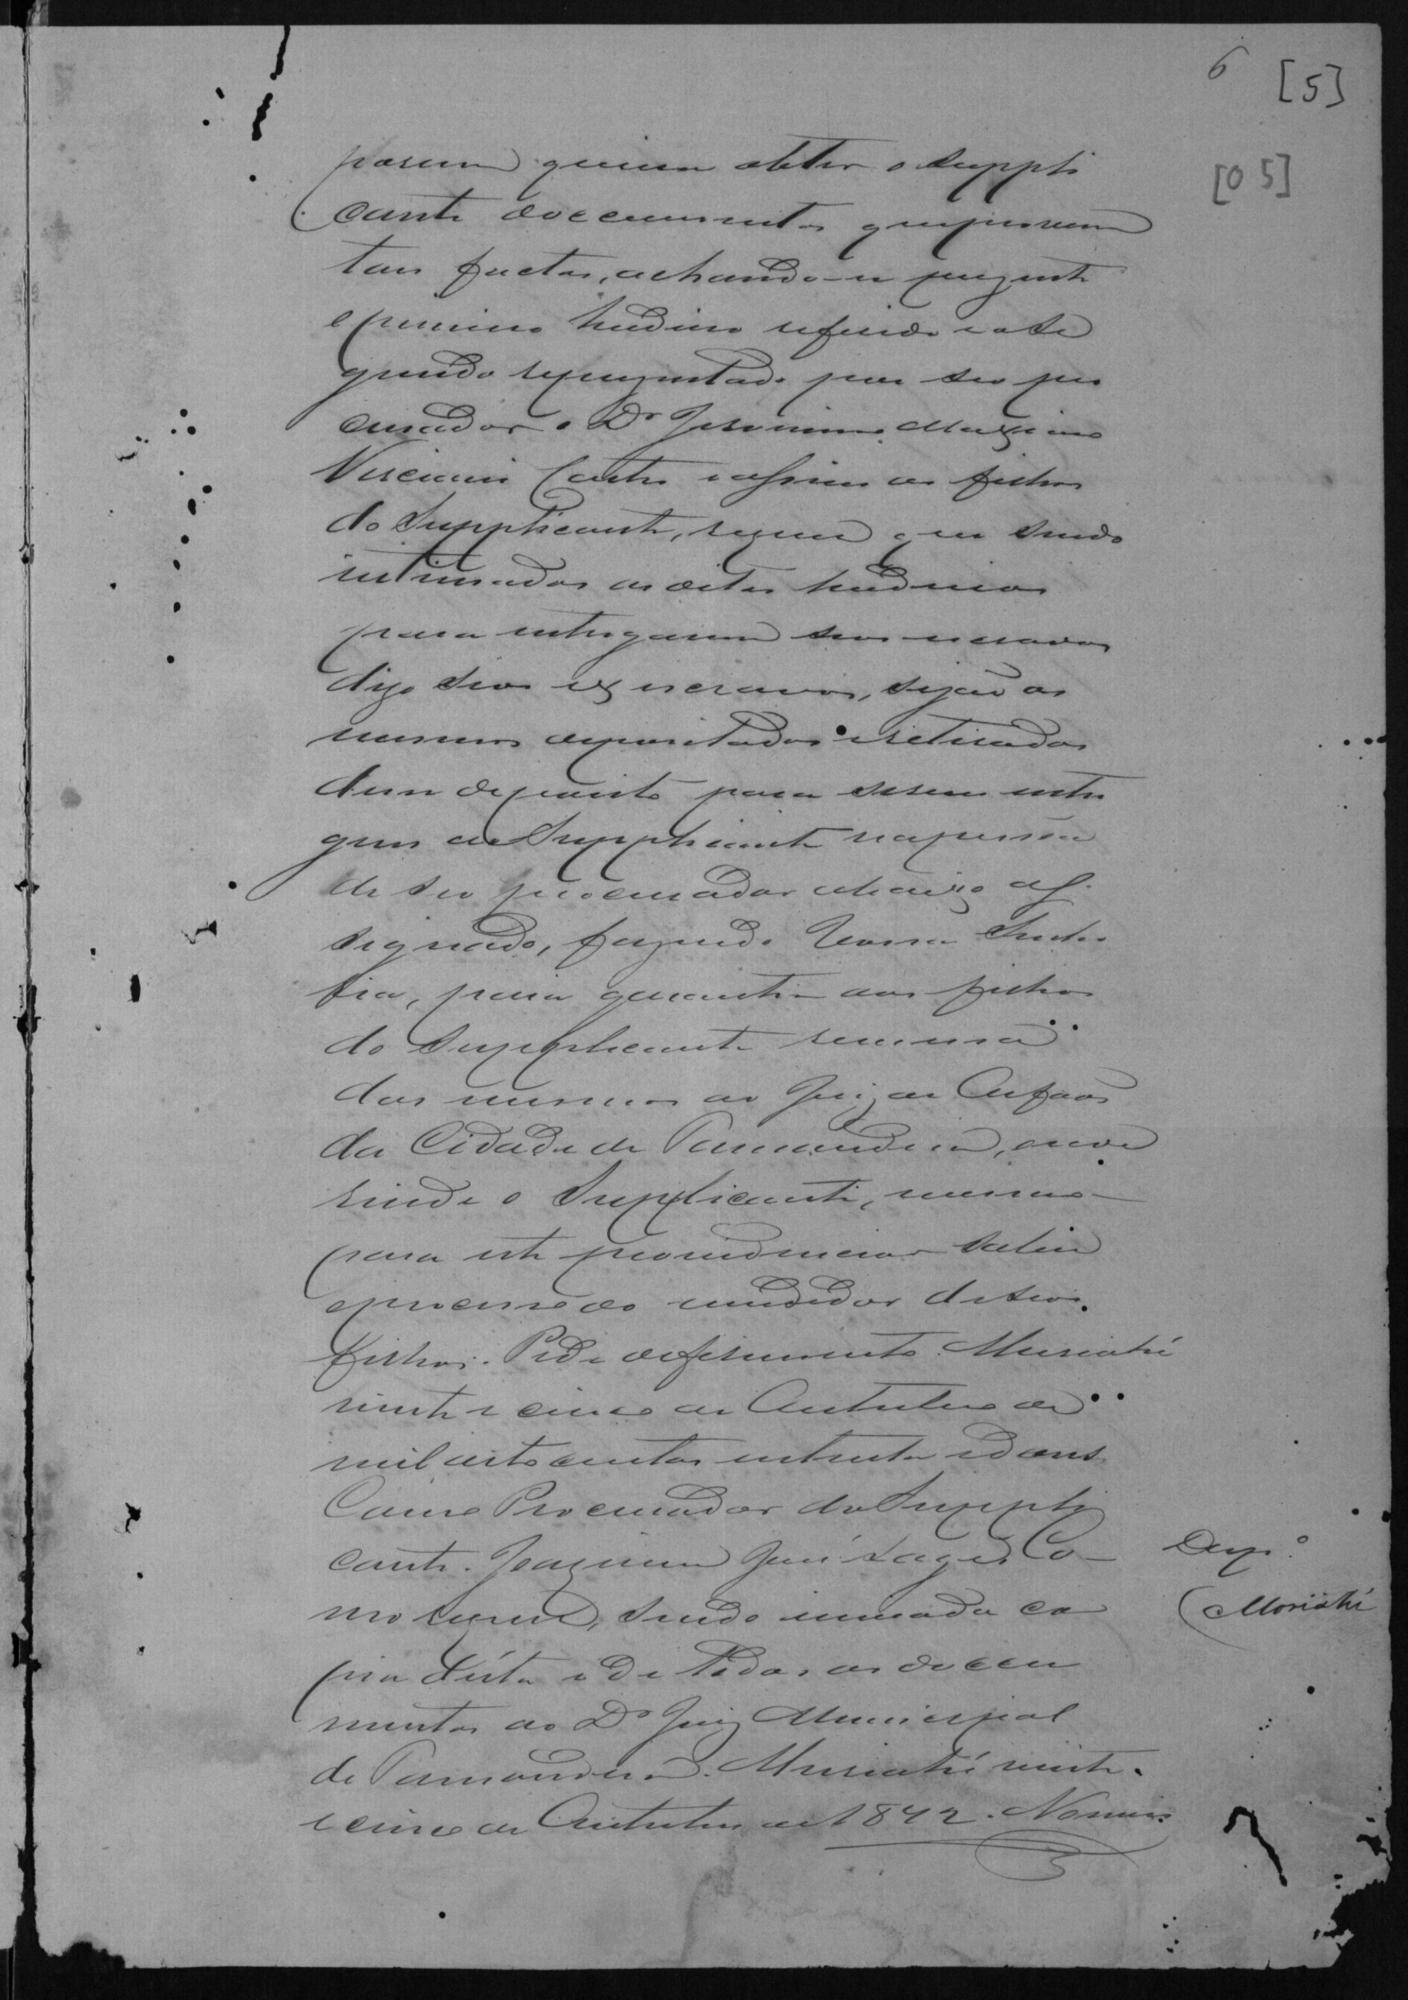 6 [5]
[05]
possam queiram obter o Suppli
cante documentos que provem
tais factos, achando-se prezente
o primeiro herdeiro referido e o Se
gundo reprezentado por seo pro
curador o Dr Jeronimo Maximo
Castro e assim os filhos
do Supplicante, requer que sendo
intimados os ditos herdeiros
para entregarem seos escravos
digo seos ex escravos, sejão os
mesmos depositados e retirados
desse deposito para serem entre
gues ao Supplicante na pessoa
de seo procurador abaixo as
signado, fazendo Vossa Senho
ria, para garantia aos filhos
do Supplicante remessa
dos mesmos ao Juiz de Orfaos
da Cidade de
rinde o Supplicante, mesmo
para este providenciar sobre
o processo do vendedor de seos
filhos. Pede deferimento. Muriahé
vinte e cinco de Outubro de
mil oitocentos e
Como Procurador do Suppli
cante. Joaquim José Lages Co-
mo requer, sendo enviada co
pia desta e de todos os docu
mentos ao Dr Juiz Municipal
de Muriahé vinte
e cinco de Outubro de 1872.
Desp.º
Moriahé